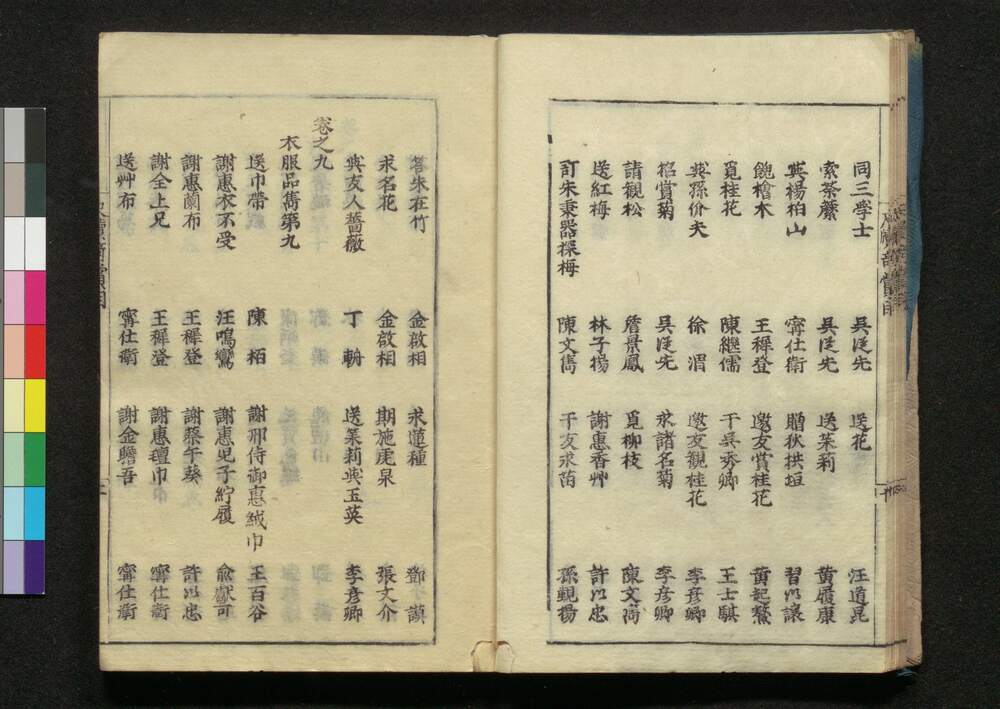 同三學士　吳從先　送花　汪道昆
索荼蘼　吳從先　送茉莉　黃履康
與楊柏山　甯仕衛　贈狄拱垣　習以讓
餽檜木　王穉登　邀友賞桂花　黃起鰲
覓桂花　陳繼儒　干吳秀卿　王士騏
與孫价夫　徐渭　邀友觀桂花　李彥卿
招賞菊　吳從先　求諸名菊　李彥卿
請觀松　詹景鳳　覓柳枝　陳文
送紅梅　林子揚　謝惠香艸　許以忠
訂朱秉器探梅　陳文雋　干友求菊　孫觀揚
答朱在竹　金啟相　求蓮種　鄧謨
求名花　金啟相　期施虎泉　張文介
與友人薔薇　丁　送茉莉與玉英　李彥卿
卷之九
衣服品雋第九
送巾帶　陳栢　謝邢侍御惠絨巾　王百谷
謝惠衣不受　汪鳴鸞　謝惠兒子紵履　俞獻可
謝惠蘭布　王穉登　謝蔡午葵　許以忠
謝全上兄　王穉登　謝惠氊巾　甯仕衛
送艸布　甯仕衛　謝金贍吾　甯仕衛